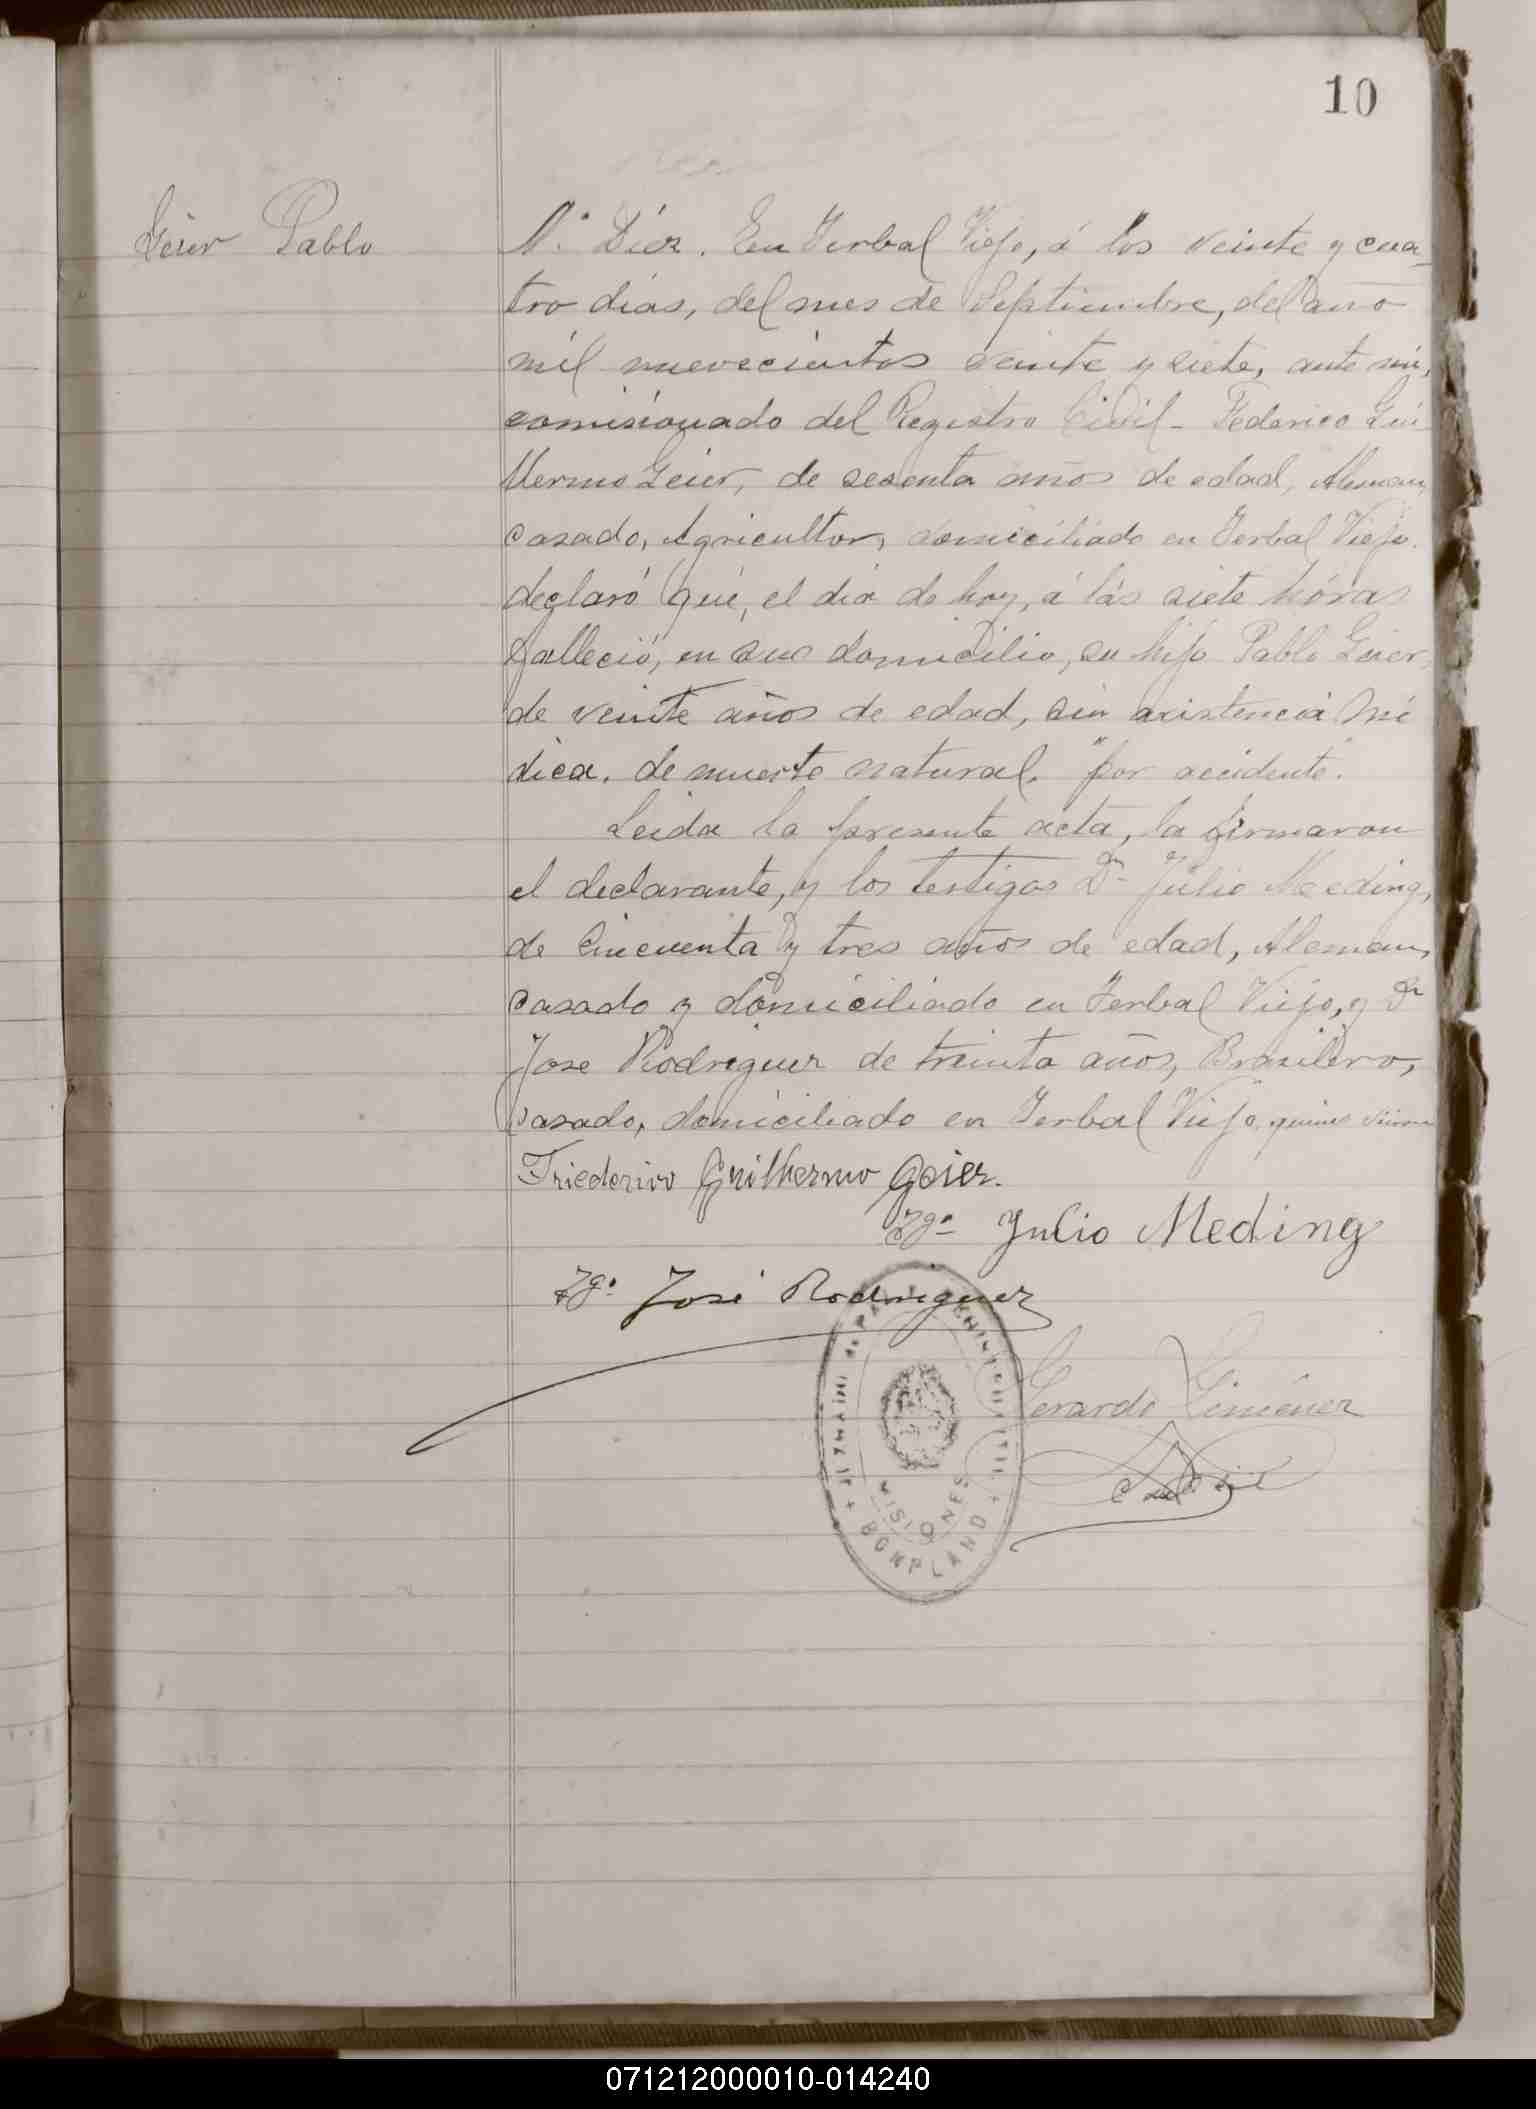 10
Geier Pablo
N.° Diez. En Yerbal Viejo, á los veinte y cua-
tro dias, del mes de Septiembre, del año
mil nuevecientos veinte y siete, ante mi,
comisionado del Registro Civil - Federico Gui
llermo Geier, de sesenta años de edad, Aleman,
casado, Agricultor, domiciliado en Yerbal Viejo.
declaró que, el dia de hoy, á lás siete hóras
falleció, en sus domicilio, su hijo Pablo Geier,
de veinte años de edad, sin asistencia Mé
dica. de muerte natural. "por accidente".
Leida la presente acta, la firmaron
el declarante, y los testigos Dn Julio Meeding,
de Cincuenta y tres años de edad, Aleman,
casado y domiciliado en Yerbal Viejo, y Dn
Jose Rodriguez de treinta años, Brasilero,
casado, domiciliado en Yerbal Viejo, quienes
Friederico Guilhermo Geier.
Tgo Julio Meding
Tgo José Rodriguez
Gerardo Giménez
MISIONES
+ BONPLAND +
071212000010-014240